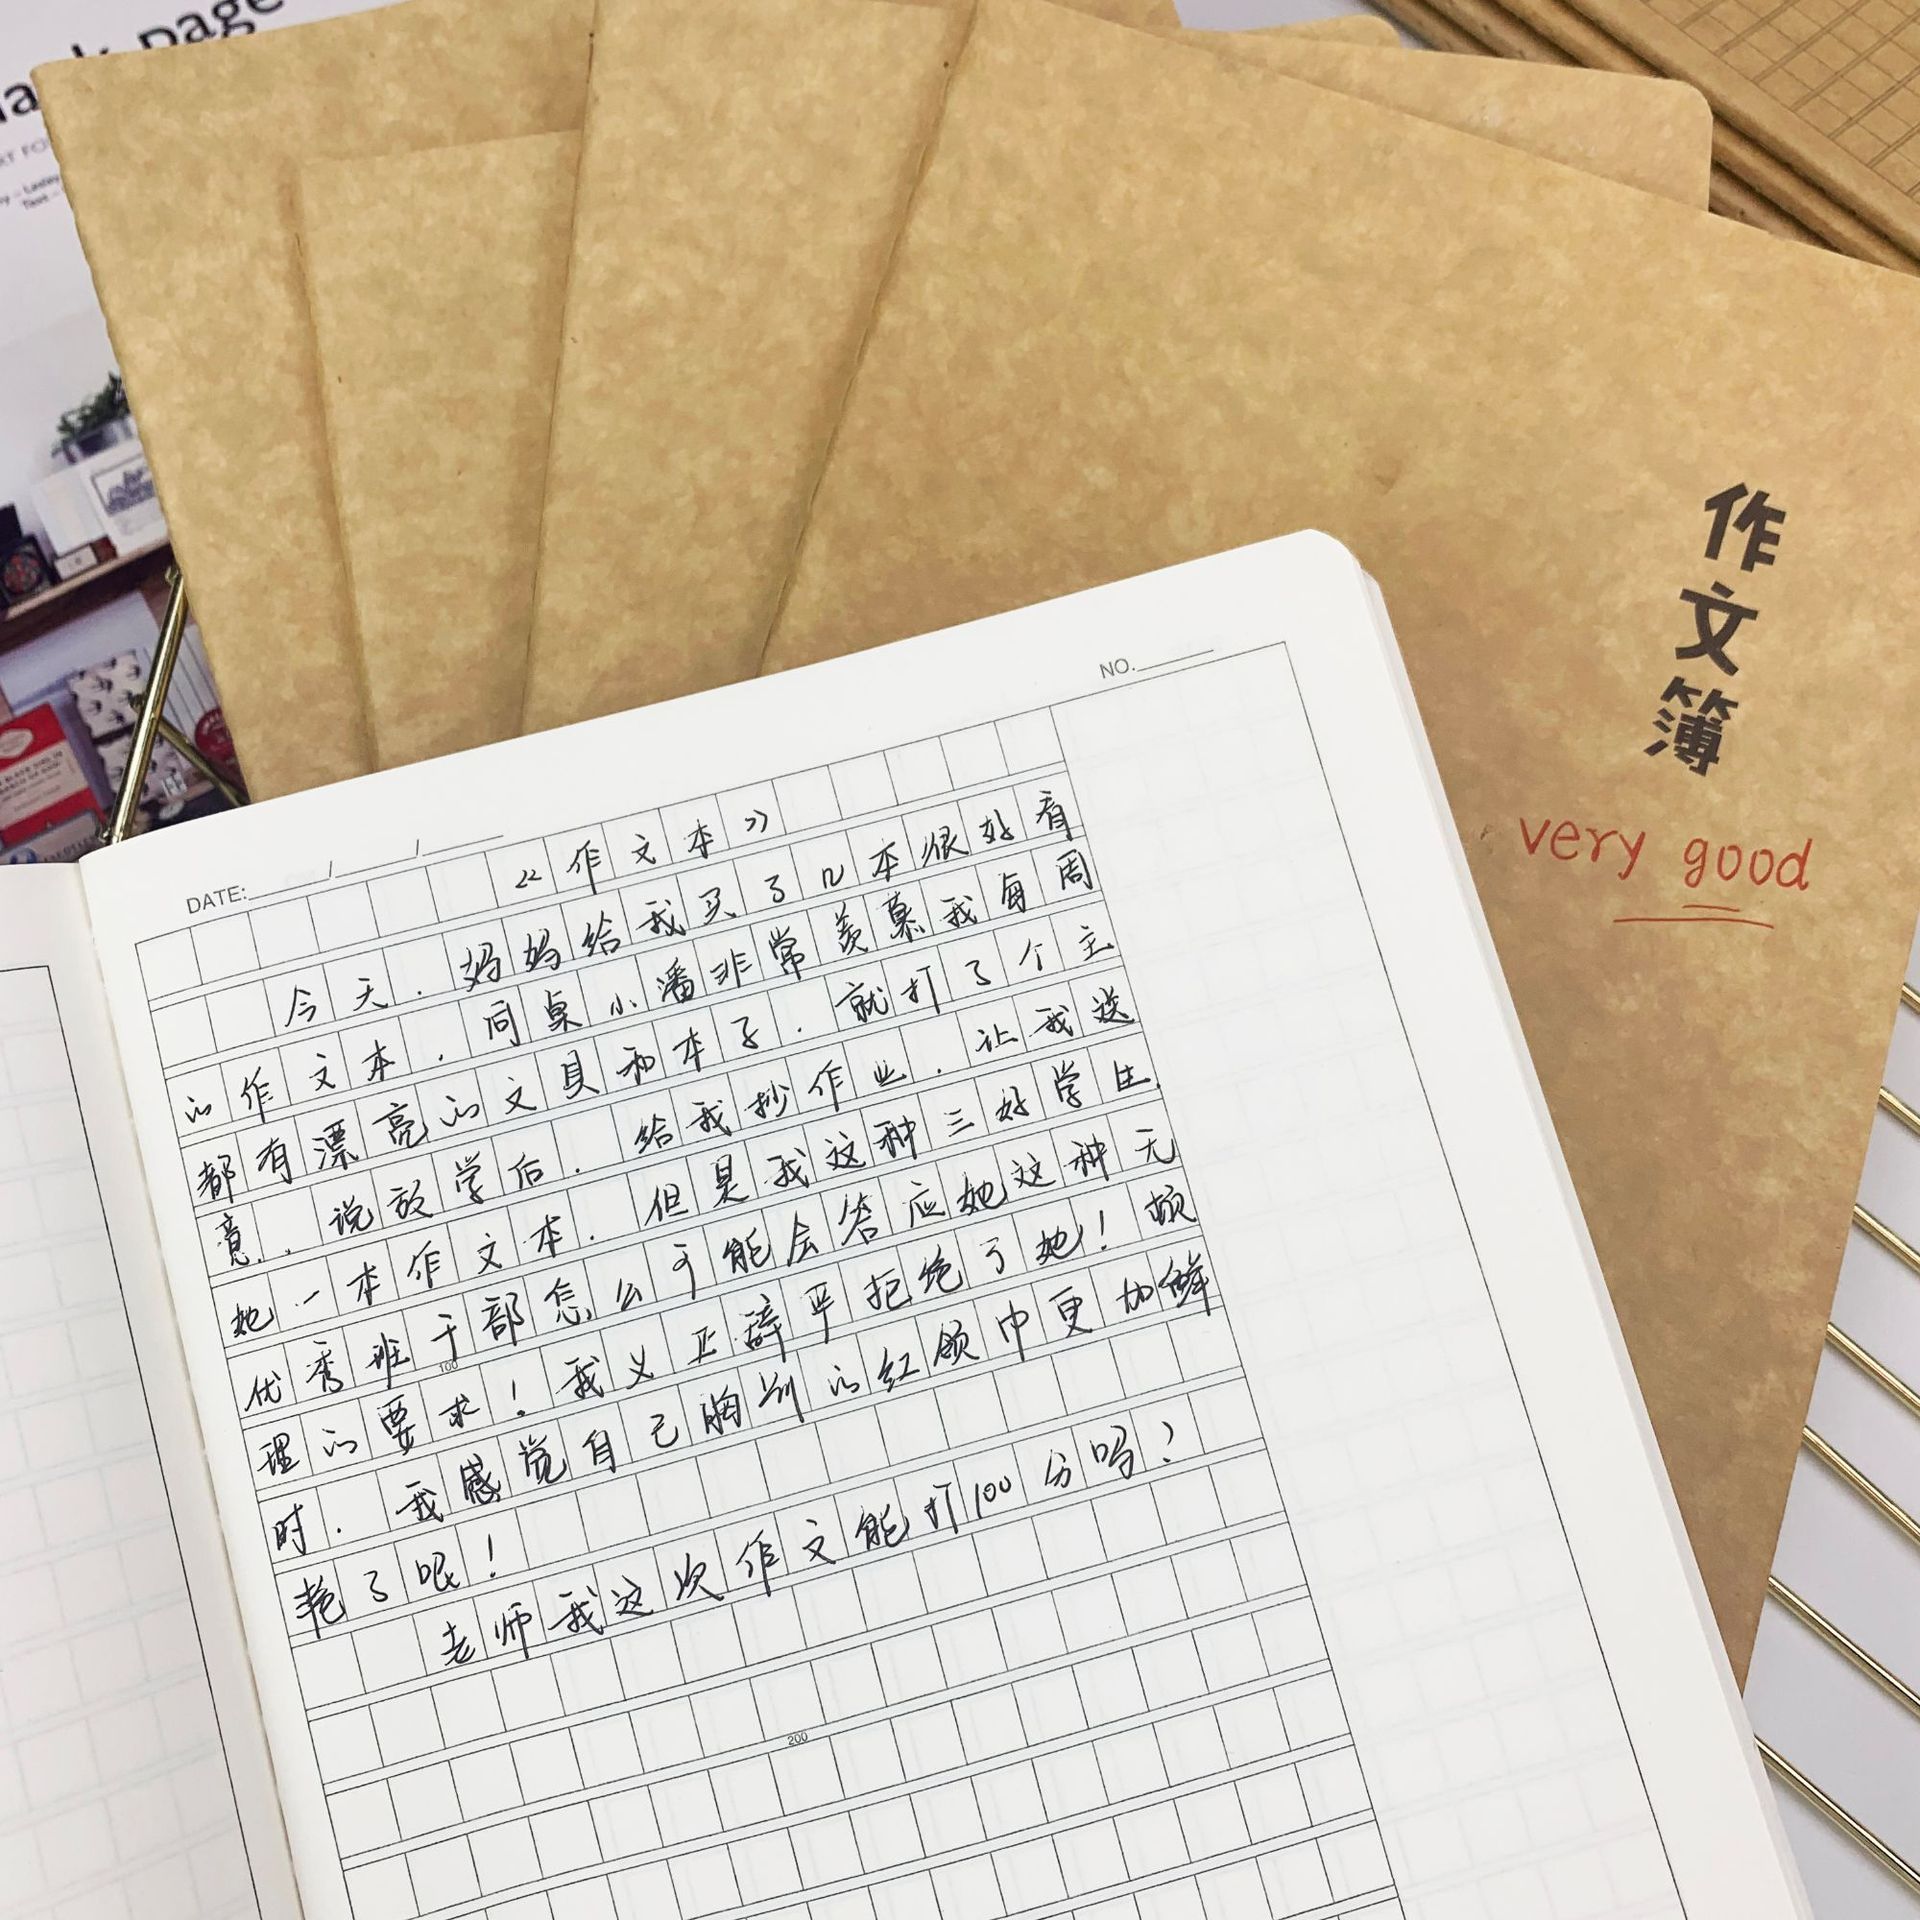 page
作文簿
very good
NO.
DATE: / /
《作文本》
今天.妈妈给我买了几本很好看
的作文本.同桌小潘非常羡慕我每周
都有漂亮的文具和本子.就打了个主
意.说放学后.给我抄作业.让我送
她一本作文本.但是我这种三好学生.
优秀班干部怎么可能会答应她这种无
100
理的要求!我义正辞严拒绝了她!顿
时.我感觉自己胸前的红领巾更加鲜
艳了呢!
老师我这次作文能打100分吗?
200